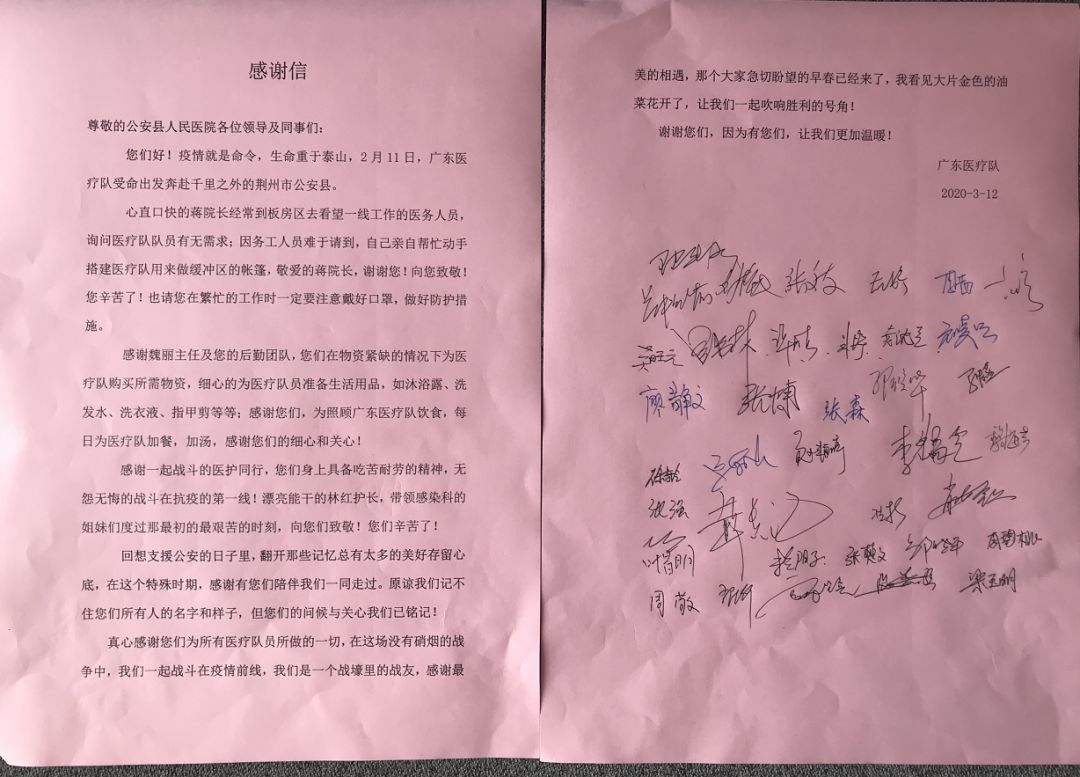 感谢信
尊敬的公安县人民医院各位领导及同事们：
您们好！疫情就是命令，生命重于泰山，2月11日，广东医
疗队受命出发奔赴千里之外的荆州市公安县。
心直口快的蒋院长经常到板房区去看望一线工作的医务人员，
询问医疗队队员有无需求；因务工人员难于请到，自己亲自帮忙动手
搭建医疗队用来做缓冲区的帐篷，敬爱的蒋院长，谢谢您！向您致敬！
您辛苦了！也请您在繁忙的工作时一定要注意戴好口罩，做好防护措
施。
感谢魏丽主任及您的后勤团队，您们在物资紧缺的情况下为医
疗队购买所需物资，细心的为医疗队员准备生活用品，如沐浴露、洗
发水、洗衣液、指甲剪等等；感谢您们，为照顾广东医疗队饮食，每
日为医疗队加餐，加汤，感谢您们的细心和关心！
感谢一起战斗的医护同行，您们身上具备吃苦耐劳的精神，无
怨无悔的战斗在抗疫的第一线！漂亮能干的林红护长，带领感染科的
姐妹们度过那最初的最艰苦的时刻，向您们致敬！您们辛苦了！
回想支援公安的日子里，翻开那些记忆总有太多的美好存留心
底，在这个特殊时期，感谢有您们陪伴我们一同走过。原谅我们记不
住您们所有人的名字和样子，但您们的问候与关心我们已铭记！
真心感谢您们为所有医疗队员所做的一切，在这场没有硝烟的战
争中，我们一起战斗在疫情前线，我们是一个战壕里的战友，感谢最
美的相遇，那个大家急切盼望的早春已经来了，我看见大片金色的油
菜花开了，让我们一起吹响胜利的号角！
谢谢您们，因为有您们，让我们更加温暖！
广东医疗队
2020-3-12
廖静文 张森
张强
周敬 梁玉明